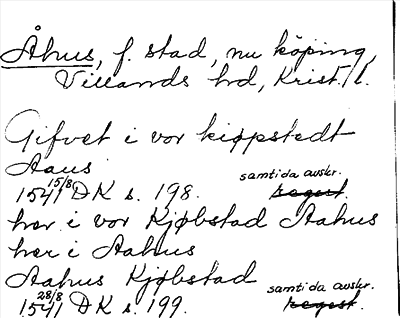 Åhus, f. stad, nu köping,
Villands hd, Krist. l.
Gifvet i vor kiøpstedt
Aaus
1541 15/8 DK s. 198. samtida avskr. regest.
her i vor Kjøbstad Aahus
her i Aahus
Aahus Kjøbstad
1541 28/8 DK s. 199. samtida avskr. regest.